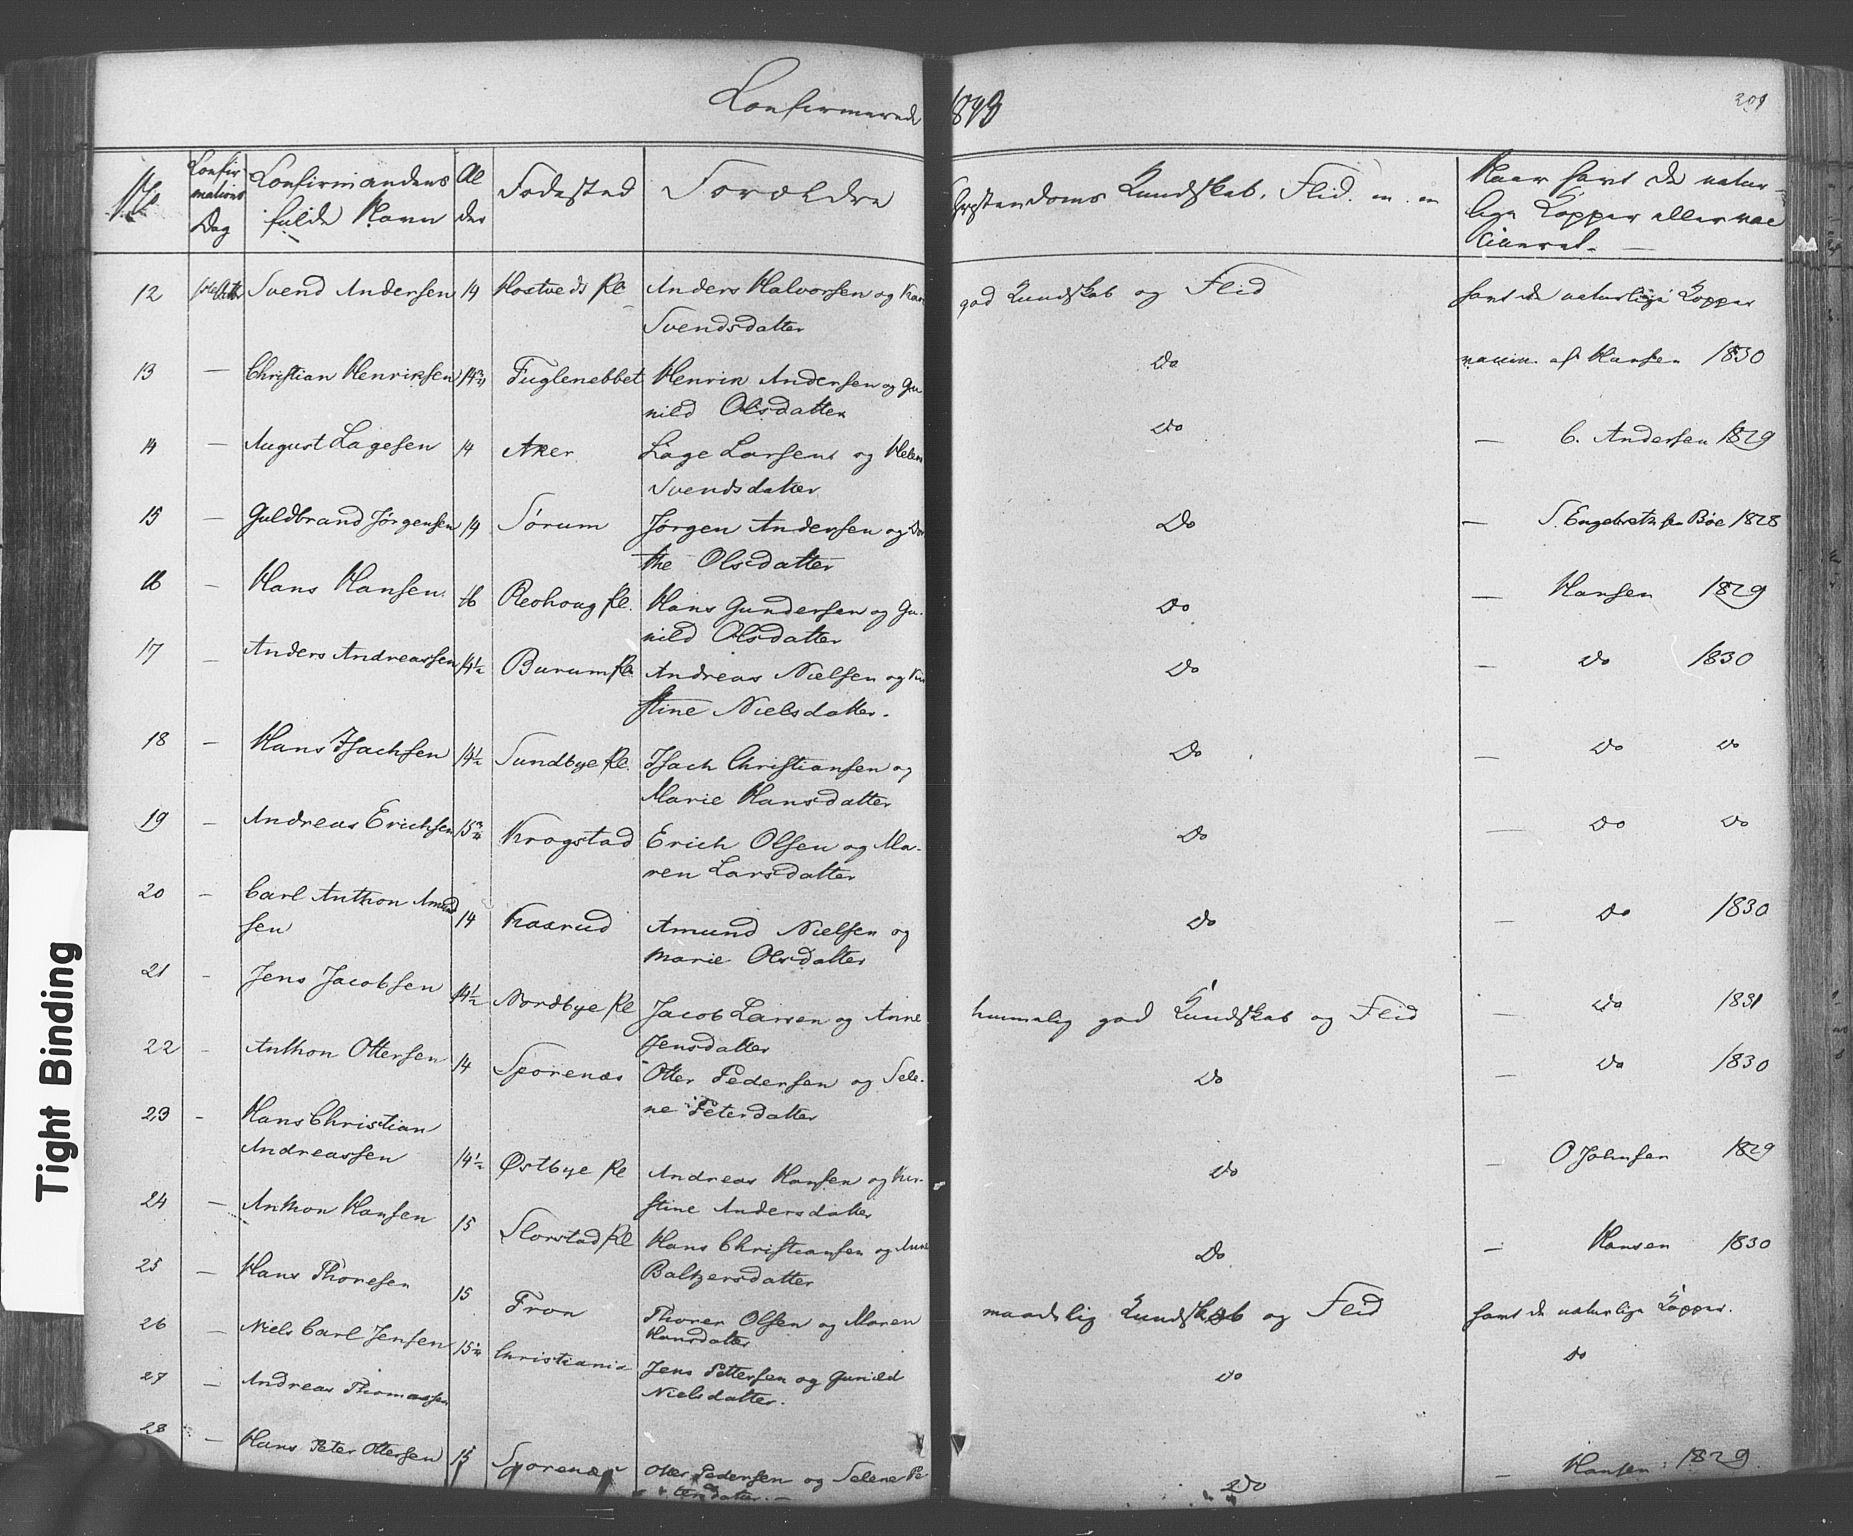 Confirmerede 1843
209
No
Confir
mations
Dag
Confirmandens
fulde Navn
Al
der
Fødested
Forældre
Christendoms Kundskab, Flid. m. m
Naar havt de natur-
lige Kopper eller vac
cineret.
12 Svend Andersen 14 Hostveds Pl Anders Halvorsen og Kari
Svendsdatter
god Kundskab og Flid
havt de naturlige Kopper
13 — Christian Henriksen 14 3/4 Fuglenebbet Henrik Andersen og Gu
nild Olsdatter
Do
vaccin. af Hansen 1830
14 — August Lagesen 14 Aker Lage Larsen og Helene
Svendsdatter
Do
— C. Andersen 1829
15 — Guldbrand Jørgensen 14 Sørum Jørgen Andersen og Dor
the Olsdatter
Do
— S. Engebretsen Bøe 1828
16 — Hans Hansen 16 Reohoug Pl. Hans Gundersen og Gu-
nild Olsdatter
Do
— Hansen 1829
17 — Anders Andreassen 14 1/2 Burum Pl Andreas Nielsen og Kir
stine Nielsdatter.
Do
— Do 1830
18 — Hans Isachsen 14 1/2 Sundbye Pl. Isach Christiansen og
Marie Hansdatter
Do
— Do Do
19 — Andreas Erichsen 15 3/4 Krogstad Erich Olsen og Ma-
ren Larsdatter
Do
— Do Do
20 — Carl Anthon Amund
sen 14 Kaarud Amund Nielsen og
Marie Olsdatter
Do
— Do 1830
21 — Jens Jacobsen 14 1/2 Nordbye Pl Jacob Larsen og Anne
Jensdatter
temmelig god Kundskab og Flid
— Do 1831
22 — Anthon Ottersen 14 Sporenæs Otter Pedersen og Sele-
ne Petersdatter
Do
— Do 1830
23 — Hans Christian
Andreassen 14 1/2 Østbye Pl Andreas Hansen og Kir-
stine Andersdatter
Do
— O Johnsen 1829
24 — Anthon Hansen 15 Slorstad Pl Hans Christiansen og Anne
Baltzersdatter
Do
— Hansen 1830
25 — Hans Thoresen 15 Fron Thorer Olsen og Maren
Hansdatter
maadelig Kundskab og Flid
havt de naturlige Kopper.
26 — Niels Carl Jensen 15 1/4 Christiania Jens Pettersen og Gunild
Nielsdatter.
Do
Do
27 — Andreas Thomassen
28 — Hans Peter Ottersen 15 Sporenæs Otter Pedersen og Selene Pe
tersdatter. —
Do
— Hansen 1829
Tight Binding